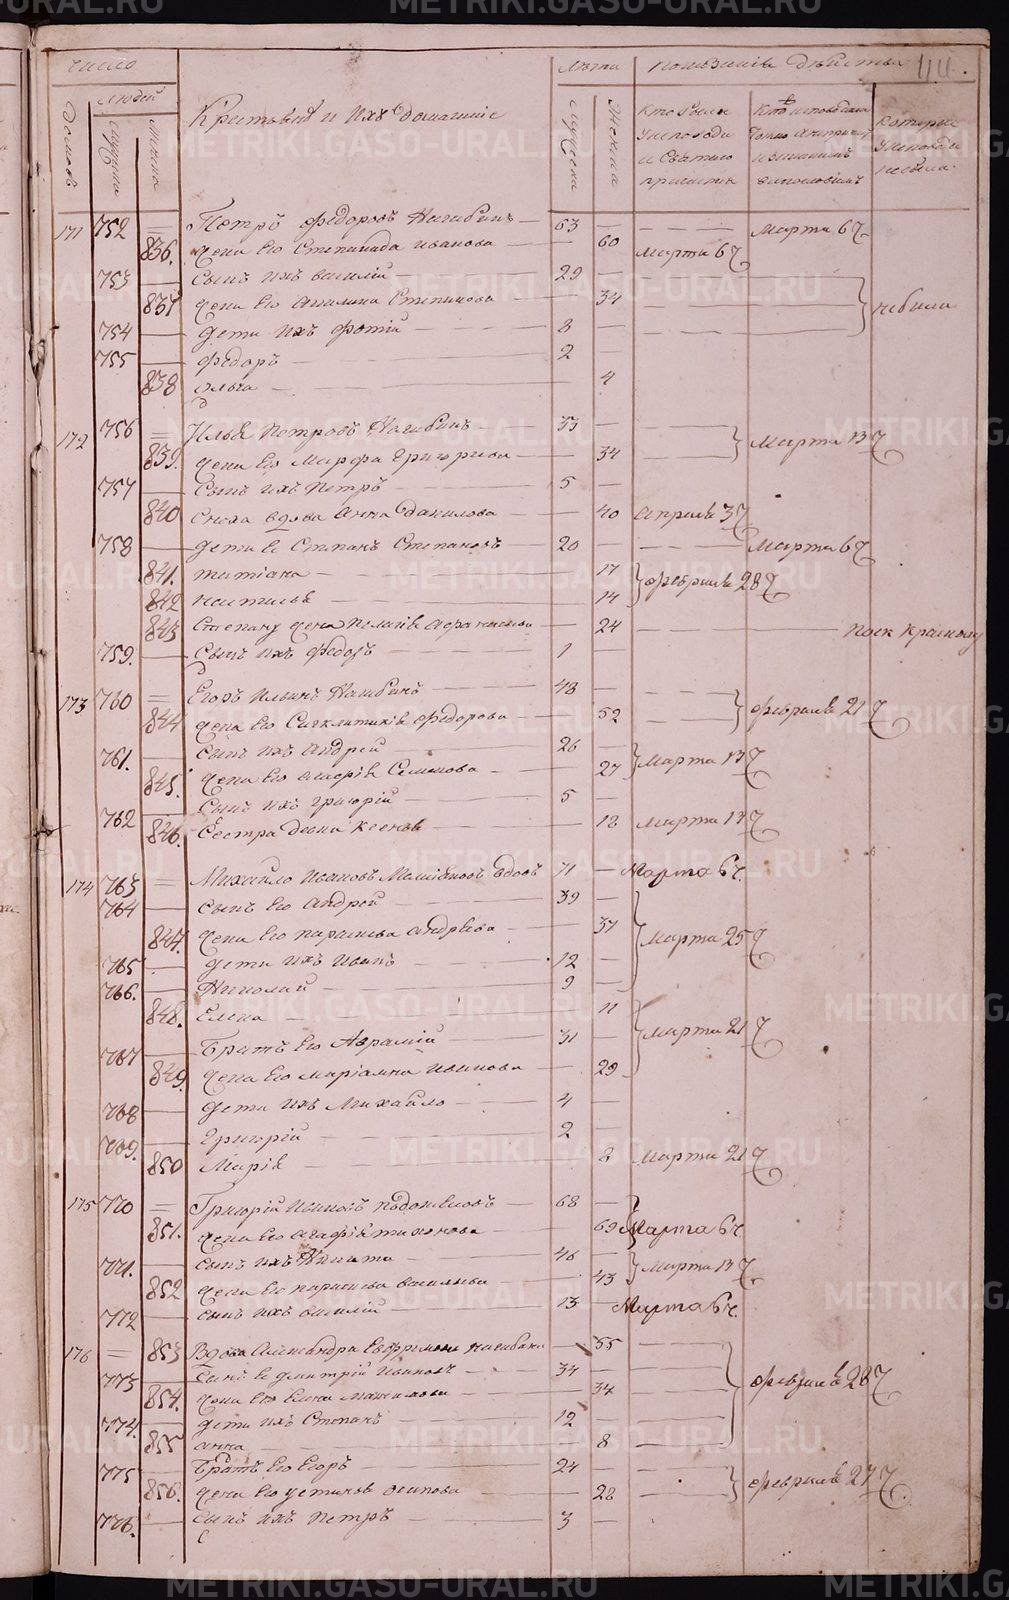 METRIKI.GASO-URAL.RU
число
людей
домовъ
мужска
женска
Крестьяне и ихъ домашніе
Лѣта
мужска
женска
44.
171 752 Петръ Федоровъ Нагибинъ 63 Марта 6 ч
836. жена Его Степанида Иванова 60 Марта 6 ч
753 Сынъ ихъ Василій 29
837 жена Его Акилина Степанова 34 небыли
754 дети ихъ Фотій 8
755 Федоръ 2
838 Ольга 4
172 756 Илья Петровъ Нагибинъ 33
839. жена Его Марфа Григорьева 34 Марта 13 ч
757 Сынъ ихъ Петръ 5
840 Сноха вдова Анна Данилова 40 Апреля 3 ч
758 дети Ея Степанъ Степановъ 20 Марта 6 ч
841. Татіана 17 Февраля 28 ч
842 Наталья 14
843 Степану жена Пелагія 24
759. Сынъ ихъ Федоръ 1
173 760 Егоръ Ильинъ Нагибинъ 48
844 жена Его Синклитикія Федорова 52 Февраля 21 ч
761. Сынъ ихъ Андрей 26
845. жена Его Агафія Семенова 27 Марта 13 ч
762 Сынъ ихъ Григорій 5
846. Сестра Ксенья 18 Марта 13 ч
174 763 Михайло Ивановъ вдовъ 71 Марта 6 ч.
764 Сынъ Его Андрей 39
847. жена Его Парасковья Андреева 37 Марта 25 ч
765 дети ихъ Иванъ 12
766. Николай 9
848. Елена 11
767 Братъ Его Аврамій 31 Марта 21 ч
849. жена Его Маріамна Иванова 29
768 дети ихъ Михайло 4
769. Григорій 2
850 Марія 8 Марта 21 ч
175 770 Григорій Ивановъ 68
851. жена Его Агафія Тихонова 69 Марта 6 ч.
771. Сынъ ихъ Никита 46
852 жена Его Парасковья Васильева 43 Марта 13 ч
772 сынъ ихъ Василій 13 Марта 6 ч.
176 853 Вдова Александра Ефремова Нагибина 55
773 Сынъ Ея Дмитрій Ивановъ 34
854. жена Его Елена Максимова 34 Февраля 28 ч
774. дети ихъ Степанъ 12
855 Анна 8
775 Братъ Его Егоръ 24
856. жена Его Устинья Осипова 28 Февраля 27 ч
776. Сынъ ихъ Петръ 3